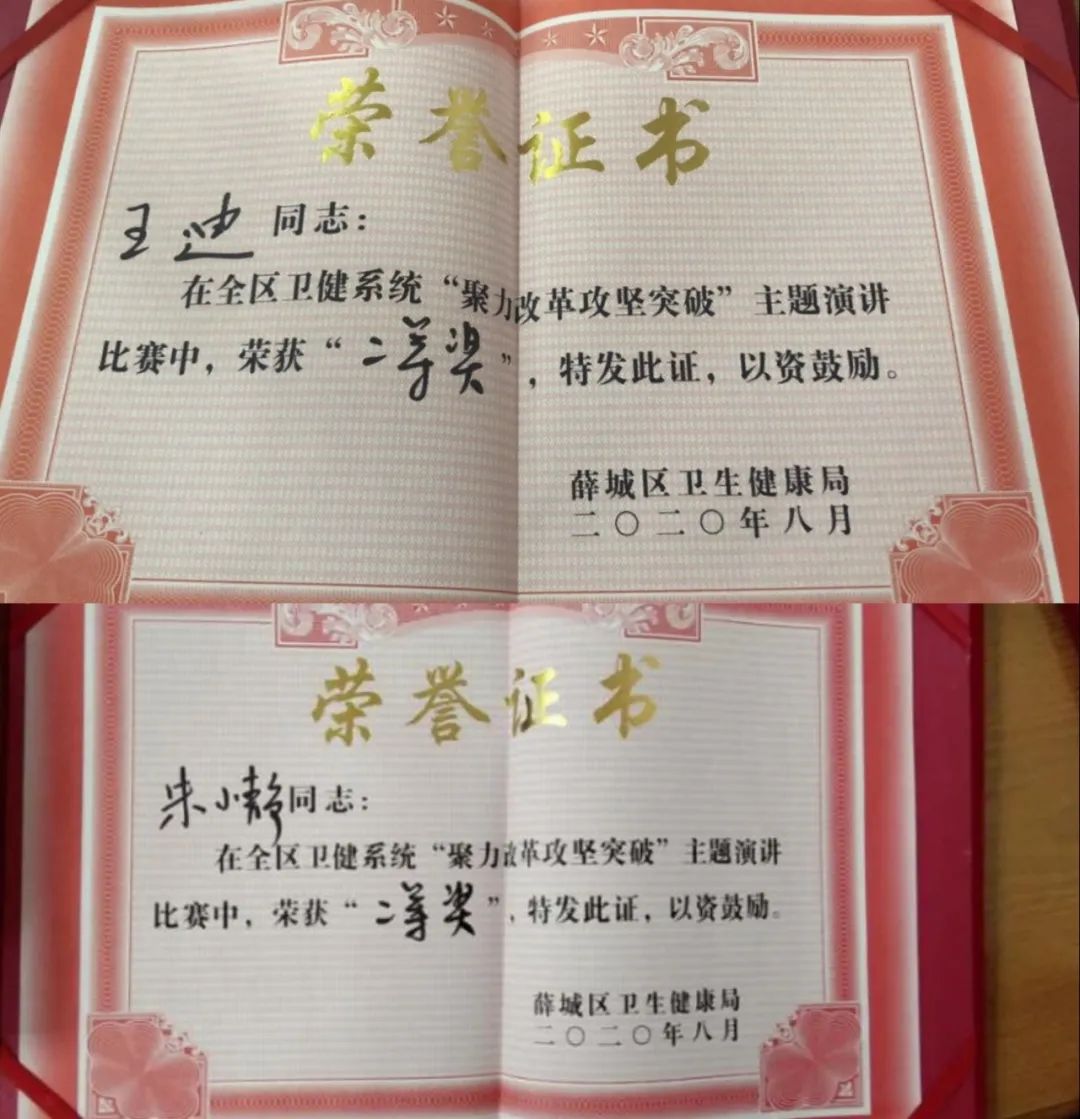 荣誉证书
王迪 同志：
在全区卫健系统“聚力改革攻坚突破”主题演讲
比赛中，荣获“二等奖”，特发此证，以资鼓励。
薛城区卫生健康局
二〇二〇年八月
荣誉证书
朱小静同志：
在全区卫健系统“聚力改革攻坚突破”主题演讲
比赛中，荣获“二等奖”，特发此证，以资鼓励。
薛城区卫生健康局
二〇二〇年八月